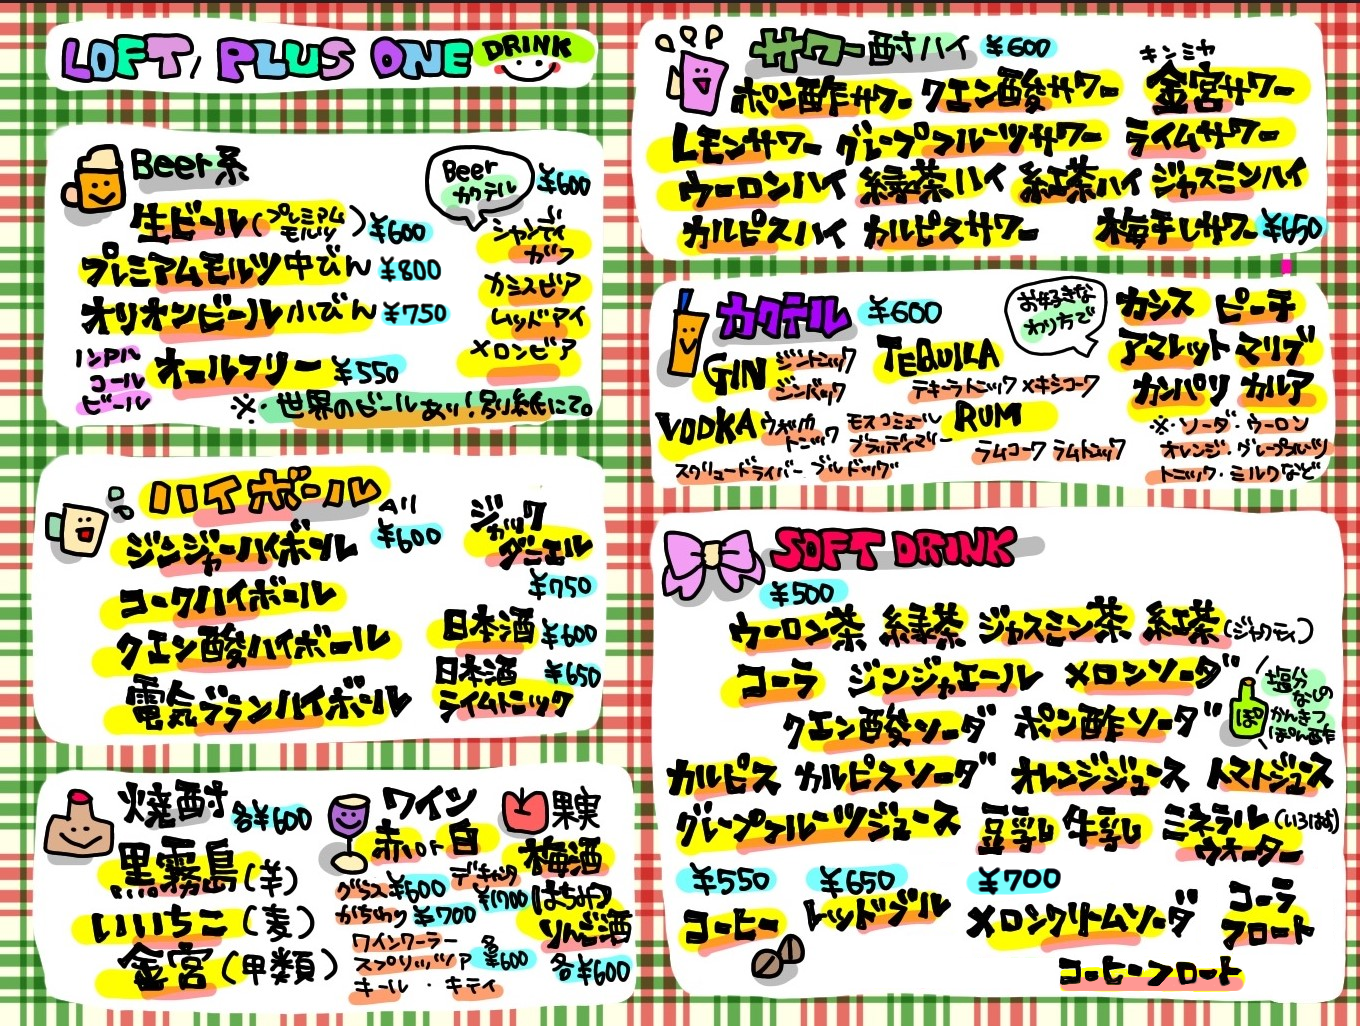 LOFT/PLUS ONE DRINK
Beer系
Beer カクテル ¥600
生ビール(プレミアムモルツ) ¥600
プレミアムモルツ中びん ¥800
オリオンビール小びん ¥750
ノンアルコールビール オールフリー ¥550
シャンディガフ
カシスビア
レッドアイ
メロンビア
※世界のビールあり!別紙にて。
ハイボール All ¥600
ジンジャーハイボール
コークハイボール
クエン酸ハイボール
電気ブランハイボール
ジャックダニエル ¥750
日本酒 ¥600
日本酒 ¥650
ライムトニック
焼酎 各¥600
黒霧島(芋)
いいちこ(麦)
金宮(甲類)
ワイン
赤 or 白
グラス¥600 デキャンタ ¥1700
かちわり ¥700
ワインクーラー
スプリッツァ 各¥600
キール・キティ
果実
梅酒
はちみつ
りんご酒
各¥600
サワー酎ハイ ¥600
キンミヤ
ポン酢サワー クエン酸サワー 金宮サワー
レモンサワー グレープフルーツサワー ライムサワー
ウーロンハイ 緑茶ハイ 紅茶ハイ ジャスミンハイ
カルピスハイ カルピスサワー 梅干しサワー ¥650
カクテル ¥600
お好きなわり方で
GIN ジントニック ジンバック
TEQUILA テキーラトニック メキシコーク
VODKA ウォッカトニック モスコミュール ブラッディマリー
スクリュードライバー ブルドッグ
RUM ラムコーク ラムトニック
カシス ピーチ
アマレット マリブ
カンパリ カルア
※・ソーダ・ウーロン
オレンジ・グレープフルーツ
トニック・ミルクなど
SOFT DRINK
¥500
ウーロン茶 緑茶 ジャスミン茶 紅茶(ジャワティ)
コーラ ジンジャエール メロンソーダ
クエン酸ソーダ ポン酢ソーダ
ぽ
塩分なしの
かんきつ
ぽん酢
カルピス カルピスソーダ オレンジジュース トマトジュース
グレープフルーツジュース 豆乳 牛乳 ミネラルウォーター(いろはす)
¥550 ¥650 ¥700
コーヒー レッドブル メロンクリームソーダ コーラフロート
コーヒーフロート